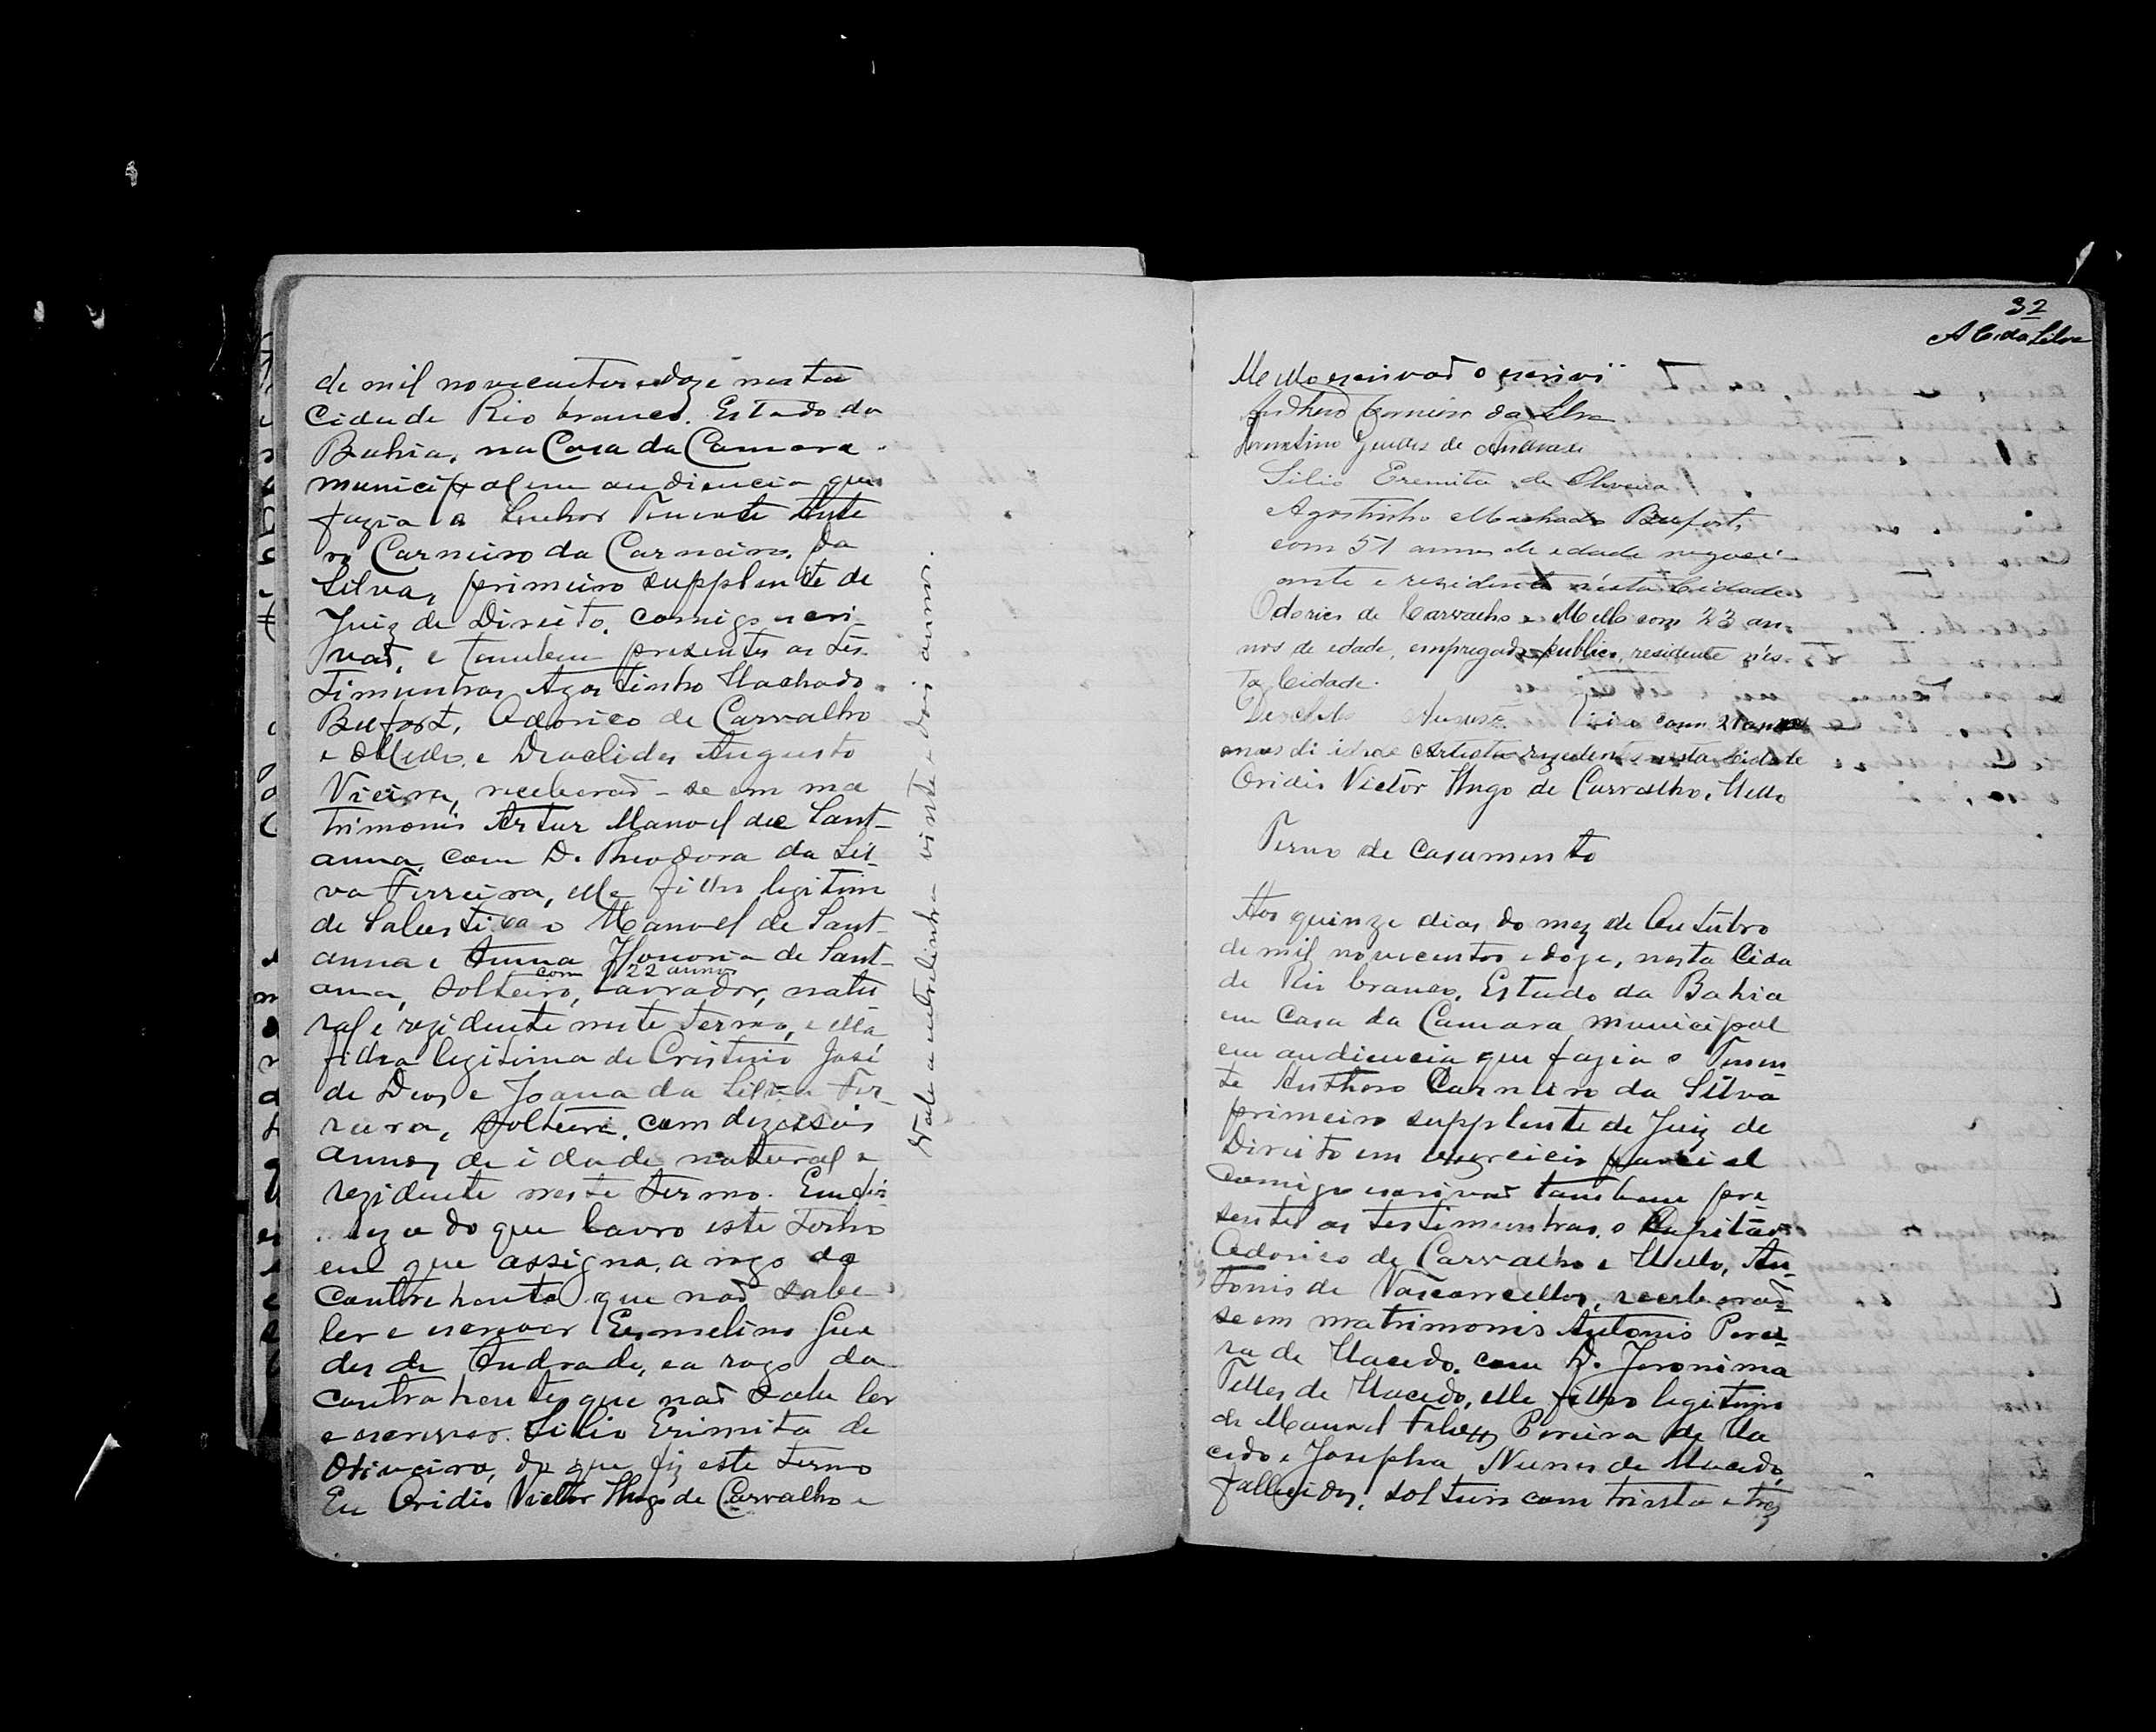 de mil novecentos e doze nesta
Cidade Rio branco. Estado da
Bahia, na Casa da Camara
municipal em audiencia que
fazia o Senhor Tenente Ante
ro Carneiro da Carneiro da
Silva, primeiro supplente de
Juiz de Direito, comigo escri
vaõ, e tambem presentes as tes-
timunhas Agostinho Machado
Beufort, Odorico de Carvalho
e Mello, e Deoclides Augusto
Vieira, receberaõ-se em ma
trimonio Artur Manoel de Sant-
anna, com D. Theodora da Sil-
va Ferreira, elle filho legitimo
de Salustiano Manoel de Sant-
anna e Anna Honoria de Sant-
anna, solteiro, com 22 annos lavrador, natu
ral e rezidente neste termo, e ella
filha legitima de Cristino José
de Deos e Joana da Silva Fer-
reira, solteira, com dezesseis
annos de idade natural e
rezidente neste termo. Em fir
meza do que lavro este termo
em que assigna, a rogo do
contrahente que naõ sabe
ler e escrever Ermelino Gue
des de Andrade, e a rogo da
contrahente que naõ sabe ler
e escrever. Silio Erimita de
Oliveira, do que fiz este termo
Eu Ovidio Victor Hugo de Carvalho e
Vale a entrelinha vinte e dois annos.
32
A C. da Silva
Mello escrivaõ o escrivi
Anthero Carneiro da Silva
Ermelino Guedes de Andrade
Silio Eremita de Oliveira
Agostinho Machado Beufort,
com 51 annos de edade negoci-
ante e residente n'esta Cidade
Odorico de Carvalho e Mello com 23 an-
nos de edade, empregado publico, residente n'es-
ta Cidade.
Augusto Vieira com 21
annos di idade Artista rezidente nesta Cidade
Ovidio Victor Hugo de Carvalho e Mello
Termo de Casamento
Aos quinze dias do mez de Outubro
de mil novecentos e doze, nesta Cida
de Rio branco, Estado da Bahia
em Casa da Camara municipal
em audiencia que fazia o Tenen-
te Anthero Carneiro da Silva
primeiro supplente de Juiz de
Direito em exercicio parcial
comigo escrivaõ tambem pre
sentes as testimunhas, o Capitaõ
Odorico de Carvalho e Mello, An-
tonio de Vasconcellos, receberaõ-
se em matrimonio Antonio Perei-
ra de Macedo, com D. Jeronima
Telles de Macedo, elle filho legitimo
de Manoel Pereira de Ma
cedo e Josepha Nunes de Macedo,
fallecidos, solteiro com trinta e tres